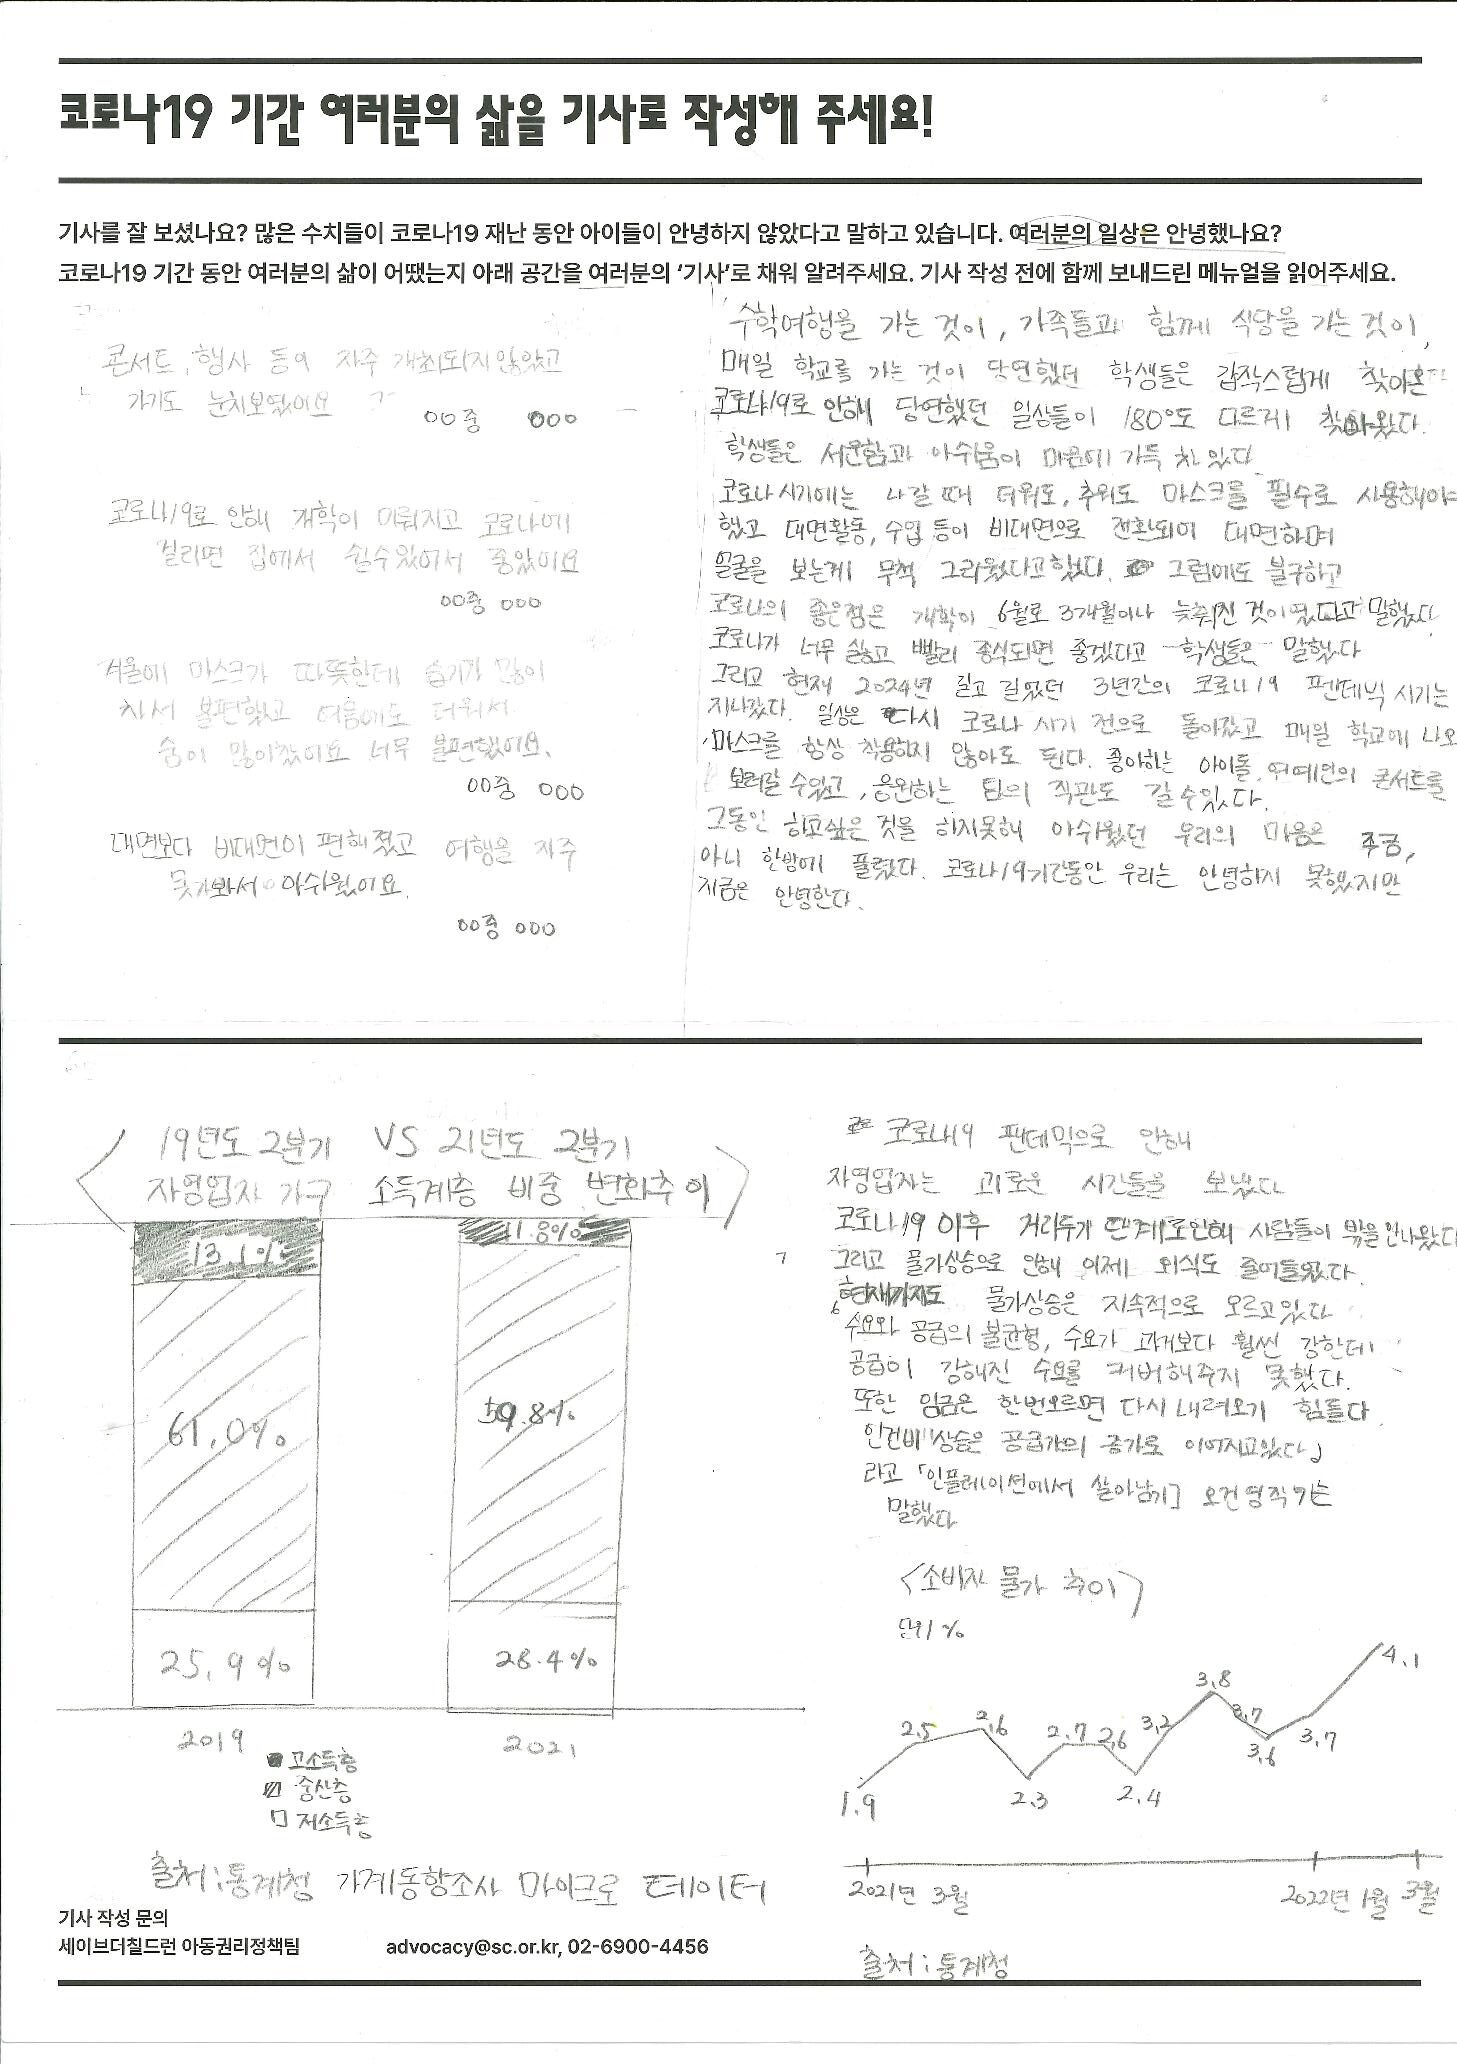 코로나19 기간 여러분의 삶을 기사로 작성해 주세요!
기사를 잘 보셨나요? 많은 수치들이 코로나19 재난 동안 아이들이 안녕하지 않았다고 말하고 있습니다. 여러분의 일상은 안녕했나요?
코로나19 기간 동안 여러분의 삶이 어땠는지 아래 공간을 여러분의 ‘기사’로 채워 알려주세요. 기사 작성 전에 함께 보내드린 메뉴얼을 읽어주세요.
콘서트, 행사 등이 자주 개최되지 않았고
가기도 눈치보였어요
00중 000
코로나19로 인해 개학이 미뤄지고 코로나에
걸리면 집에서 쉴수있어서 좋았어요
00중 000
겨울에 마스크가 따뜻한데 습기가 많이
차서 불편했고 여름에도 더워서
숨이 많이찼어요 너무 불편했어요.
00중 000
대면보다 비대면이 편해졌고 여행을 자주
못가봐서 아쉬웠어요.
00중 000
수학여행을 가는 것이, 가족들과 함께 식당을 가는 것이,
매일 학교를 가는 것이 당연했던 학생들은 갑작스럽게 찾아온
코로나19로 인해 당연했던 일상들이 180°도 다르게 찾아왔다.
학생들은 서운함과 아쉬움이 마음에 가득 차 있다
코로나 시기에는 나갈 때 더워도, 추워도 마스크를 필수로 사용해야
했고 대면활동, 수업 등이 비대면으로 전환되어 대면하며
얼굴을 보는게 무척 그리웠다고했다. 그럼에도 불구하고
코로나의 좋은점은 개학이 6월로 3개월이나 늦춰진 것이였다고 말했다
코로나가 너무 싫고 빨리 종식되면 좋겠다고 학생들은 말했다
그리고 현재 2024년 길고 길었던 3년간의 코로나19 펜데믹 시기는
지나갔다. 일상은 다시 코로나 시기 전으로 돌아갔고 매일 학교에 나오
마스크를 항상 착용하지 않아도 된다. 좋아하는 아이돌, 연예인의 콘서트를
보러갈 수있고, 응원하는 팀의 직관도 갈수있다.
그동안 하고싶은 것을 하지못해 아쉬웠던 우리의 마음은 조금,
아니 한방에 풀렸다. 코로나19기간동안 우리는 안녕하지 못했지만
지금은 안녕한다.
<19년도 2분기 VS 21년도 2분기
자영업자 가구 소득계층 비중 변화추이>
13.1%
61.0%
25.9%
2019
11.8%
59.8%
28.4%
2021
고소득층
중산층
저소득층
출처:통계청 가계동향조사 마이크로 데이터
코로나19 판데믹으로 인해
자영업자는 괴로운 시간들을 보냈다
코로나19 이후 거리두기 단계로인해 사람들이 밖을안나왔다
그리고 물가상승으로 인해 이제 외식도 줄어들었다.
현재까지도 물가상승은 지속적으로 오르고있다
수요와 공급의 불균형, 수요가 과거보다 훨씬 강한데
공급이 강해진 수요를 커버해주지 못했다.
또한 임금은 한번오르면 다시 내려오기 힘들다
인건비 상승은 공급가의 증가로 이어지고있다」
라고 「인플레이션에서 살아남기」 오건영작가는
말했다
<소비자 물가 추이>
단위 %
1.9 2.5 2.6 2.3 2.7 2.6 2.4 3.2 3.8 3.7 3.6 3.7 4.1
2021년 3월 2022년 1월 3월
출처:통계청
기사 작성 문의
세이브더칠드런 아동권리정책팀 advocacy@sc.or.kr, 02-6900-4456